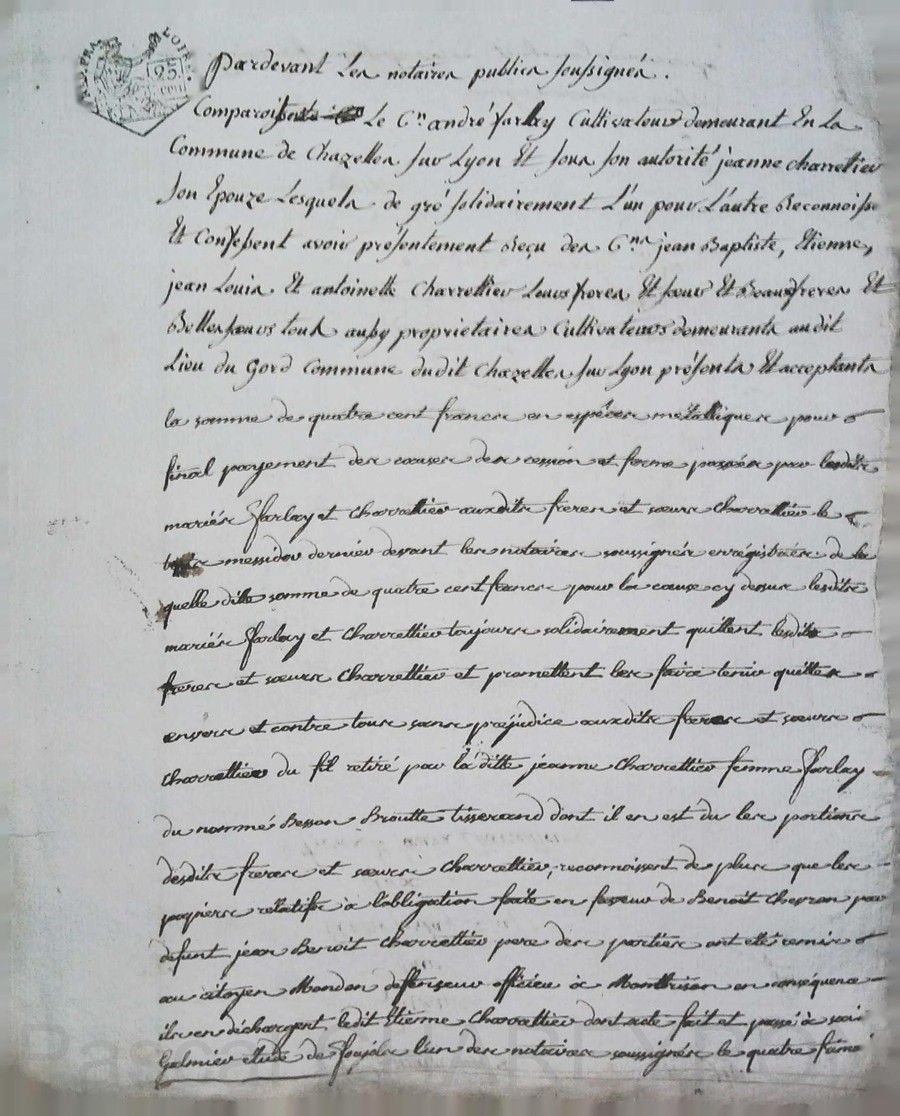 25 cent
Pardevant Les notaires publics soussignés.
Comparoissent Le C.en andré farlay Cultivateur demeurant En La
Commune de Chazelles sur Lyon Et sous son autorité jeanne charrettier
son Epouze Lesquels de gré solidairement L'un pour L'autre Reconnoisse
Et Confessent avoir présentement Reçu des C.ens jean Baptiste, Etienne,
jean Louis Et antoinette Charrettier Leurs freres Et sœur Et Beaufreres Et
Belles sœurs tous aussy proprietaires Cultivateurs demeurants audit
Lieu du Gord Commune dudit Chazelles sur Lyon présents Et acceptants
la somme de quatre cent francs en espéces métalliques pour
final payement des causes des cession et ferme passés par lesdits
mariés farlay et Charrettier auxdits freres et sœurs Charrettier le
messidor dernier devant les notaires soussignés enrégistrées de la
quelle ditte somme de quatre cent francs pour la cause cy dessus lesdits
mariés farlay et Charrettier toujours solidairement quittent lesdits
freres et sœurs Charrettier et promettent les faire tenir quittes
envers et contre tous sans préjudice auxdits freres et sœurs
Charrettier du fil retiré par la ditte jeanne Charrettier femme farlay
du nommé Besson Broutte tisserand dont il en est du les portions
desdits freres et sœurs Charrettier, reconnoissent de plus que les
papiers rélatifs à l'obligation faite en faveur de Benoit Cheyron par
defunt jean Benoit Charrettier pere des parties ont été remis
au citoyen Mondon deffenseur officieu à Montbrison en conséquence
ils en déchargent ledit Etienne Charrettier dont acte fait et passé à sai
Galmier étude de l'un des notaires soussignés le quatre